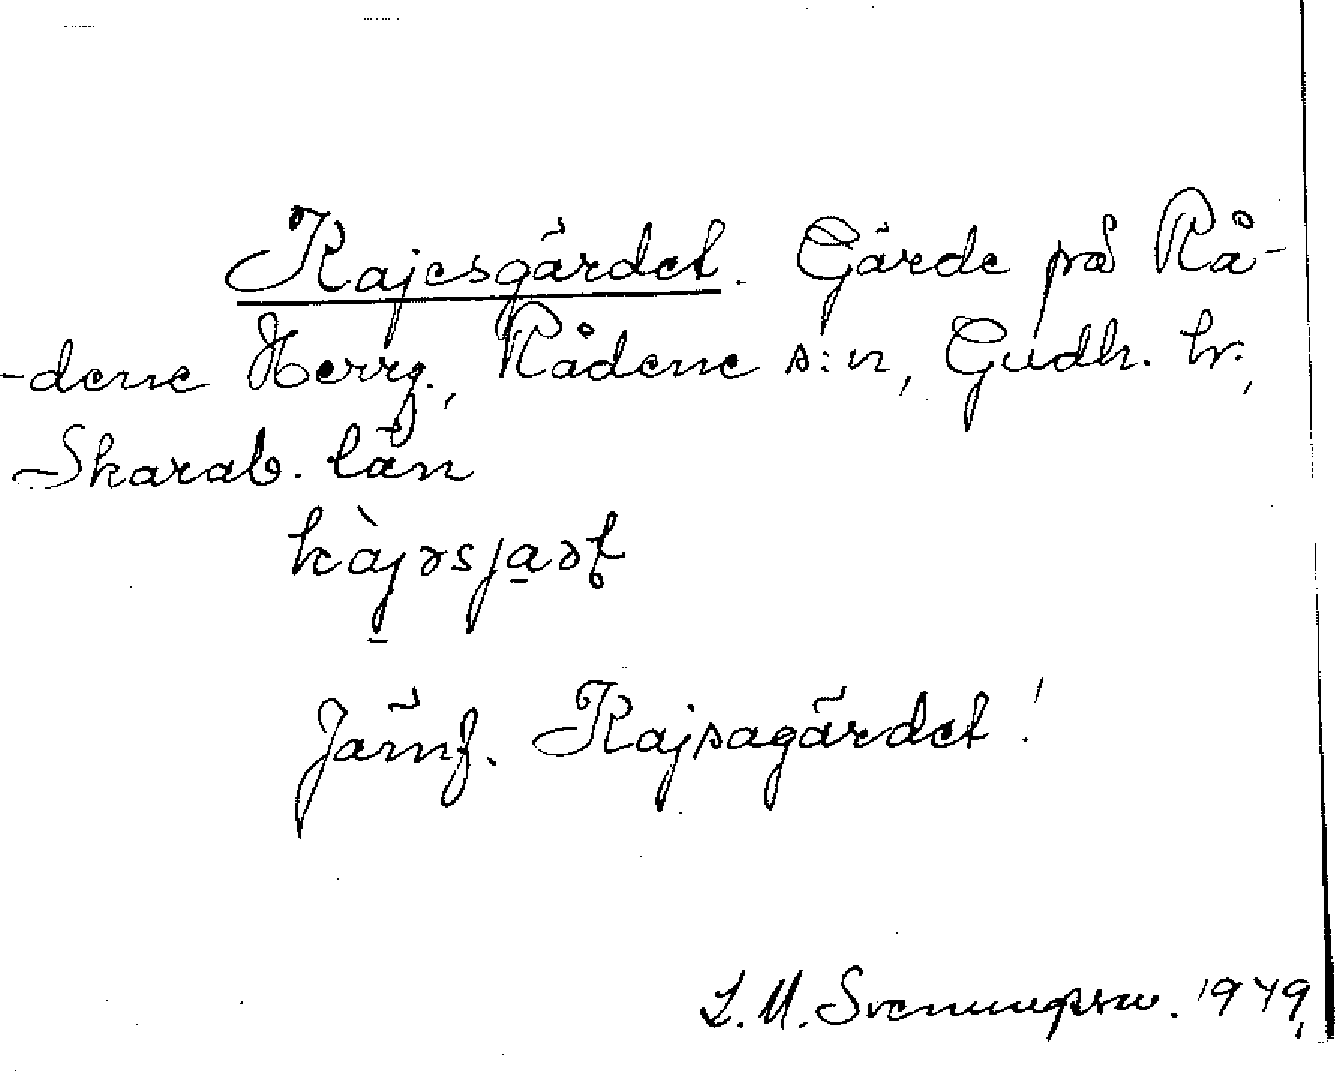 Kajesgärdet. Gärde på Rå-
-dene Herrg., Rådene s:n, Gudh. hr.,
Skarab. län
kàjəsja̱ət
Jämf. Kajsagärdet!
L. M. Svenungsson. 1949.